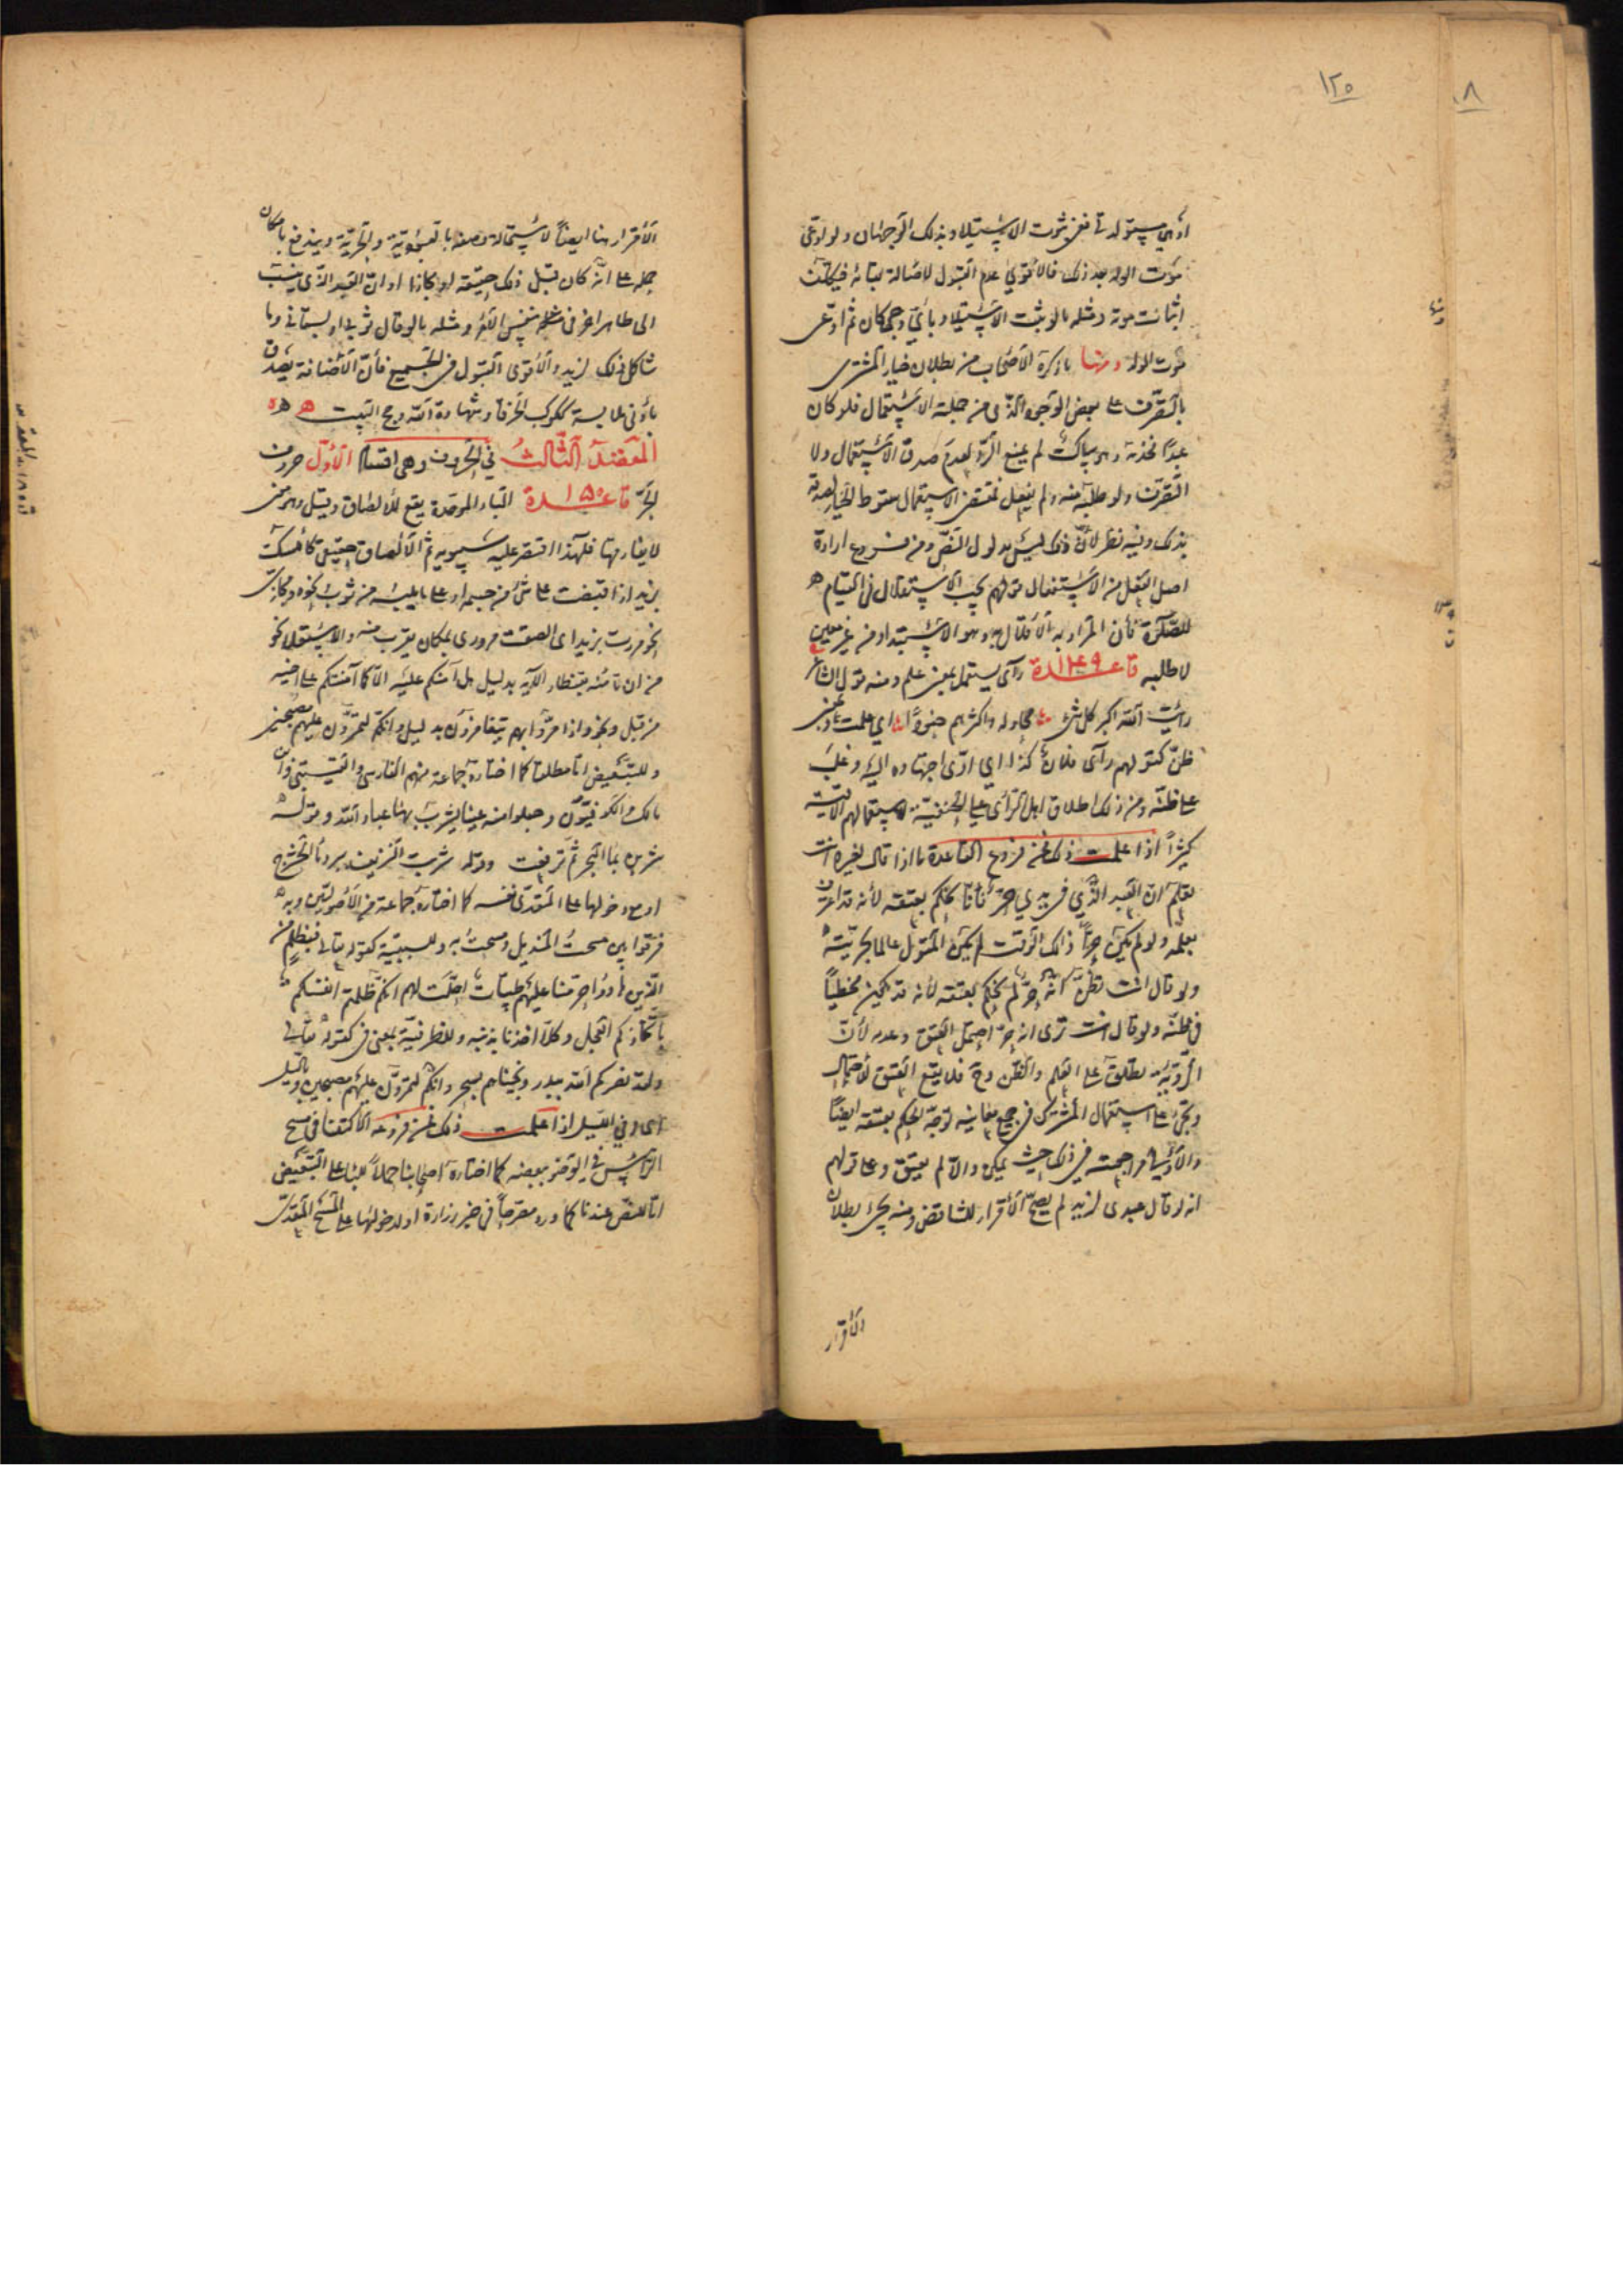 ١٢٥
٨
او هي مستولدتي ففي ثبوت الاستيلاد بذلك الوجهان ولو ادعى
موت الولد بعد ذلك فالاقوى عدم القبول لاصالة بقائه فيكلف
اثبات موته ومثله ما لو ثبت الاستيلاد باي وجه كان ثم ادعى
موت الولد ومنها ما ذكره الاصحاب من بطلان خيار المشتري
بالتصرف على بعض الوجوه الذي من جملته الاستعمال فلو كان
عبدا فخدمه وهو ساكت لم يمنع الرد لعدم صدق الاستعمال ولا
التصرف ولو طلبه منه ولم يفعل فمقتضى الاستعمال سقوط الخيار لصدقه
بذلك وفيه نظر لان ذلك ليس مدلول النص ومن فروع ارادة
اصل الفعل من الاستفعال قولهم يجب الاستقلال في القيام
للصلوة فان المراد به الاقلال وهو الاستبداد من غير معين
لا طلبه قاعدة ١٤٩ رأى يستعمل بمعنى علم ومنه قول الشاعر
رأيت الله اكبر كل شيء محاولة واكثرهم جنودا اي علمت وبمعنى
ظن كقولهم رأى فلان كذا اي ادى اجتهاده اليه وغلب
على ظنه ومن ذلك اطلاق اهل الرأي على الحنفية لاستعمالهم الاقيسة
كثيرا اذا علمت ذلك فمن فروع القاعدة ما اذا قال لغيره انت
تعلم ان العبد الذي في يدي حر فانا نحكم بعتقه لانه قد اعترف
بعلمه ولو لم يكن حرا ذلك الوقت لم يكن المقول له عالما بحريته
ولو قال انت تظن انه حر لم نحكم بعتقه لانه قد يكون مخطيا
في ظنه ولو قال انت ترى انه حر احتمل العتق وعدمه لان
الرؤية تطلق على العلم والظن وح فلا يقع العتق للاحتمال
ويجيء على استعمال المشترك في جميع معانيه توجه الحكم بعتقه ايضا
والاولى مراجعته في ذلك حيث يمكن والا لم يعتق وعلى قولهم
انه لو قال عبدي لزيد لم يصح الاقرار للتناقض ومنه يجيء بطلان
الاقرار
الاقرار هنا ايضا لاستحالة وصفه بالعبودية والحرية ويندفع بامكان
حمله على انه كان قبل ذلك حقيقة او مجازا او ان العبد الذي ينسب
الى ظاهرا حر في نفس الامر ومثله ما لو قال ثوبي او بستاني وما
شاكل ذلك لزيد والاقوى القبول في الجميع فان الاضافة يصدق
بادنى ملابسة ككوكب الخرقاء وشهادة الله وحج البيت
المقصد الثالث في الحروف وهي اقسام الاول حروف
الجر قاعدة ١٥٠ الباء الموحدة يقع للالصاق وقيل وهو معنى
لا يفارقها فلهذا اقتصر عليه سيبويه ثم الالصاق حقيقي كامسكت
بزيد اذا قبضت على شيء من جسمه او على ما يلبسه من ثوب ونحوه ومجازي
نحو مررت بزيد اي الصقت مروري بمكان يقرب منه والاستعلاء نحو
من ان تامنه بقنطار الآية بدليل هل آمنكم عليه الا كما امنتكم على اخيه
من قبل ونحو واذا مروا بهم يتغامزون بدليل وانكم لتمرون عليهم مصبحين
وللتبعيض اما مطلقا كما اختاره جماعة منهم الفارسي والقتيبي وابن
مالك والكوفيون وجعلوا منه عينا يشرب بها عباد الله وقوله
شربن بماء البحر ثم ترفعت وقوله شرب النزيف ببرد ماء الحشرج
او مع دخولها على المتعدي بنفسه كما اختاره جماعة من الاصوليين وبه
فرقوا بين مسحت المنديل ومسحت به وللسببية كقوله تعالى فبظلم من
الذين هادوا حرمنا عليهم طيبات احلت لهم انكم ظلمتم انفسكم
باتخاذكم العجل وكلا اخذنا بذنبه وللظرفية بمعنى في كقوله تعالى
ولقد نصركم الله ببدر ونجيناهم بسحر وانكم لتمرون عليهم مصبحين وبالليل
اي وفي الليل اذا علمت ذلك فمن فروعه الاكتفاء في مسح
الرأس في الوضوء ببعضه كما اختاره اصحابنا حملا للباء على التبعيض
اما للنص عندنا كما ورد مصرحا في خبر زرارة او لدخولها على المسح المتعدي